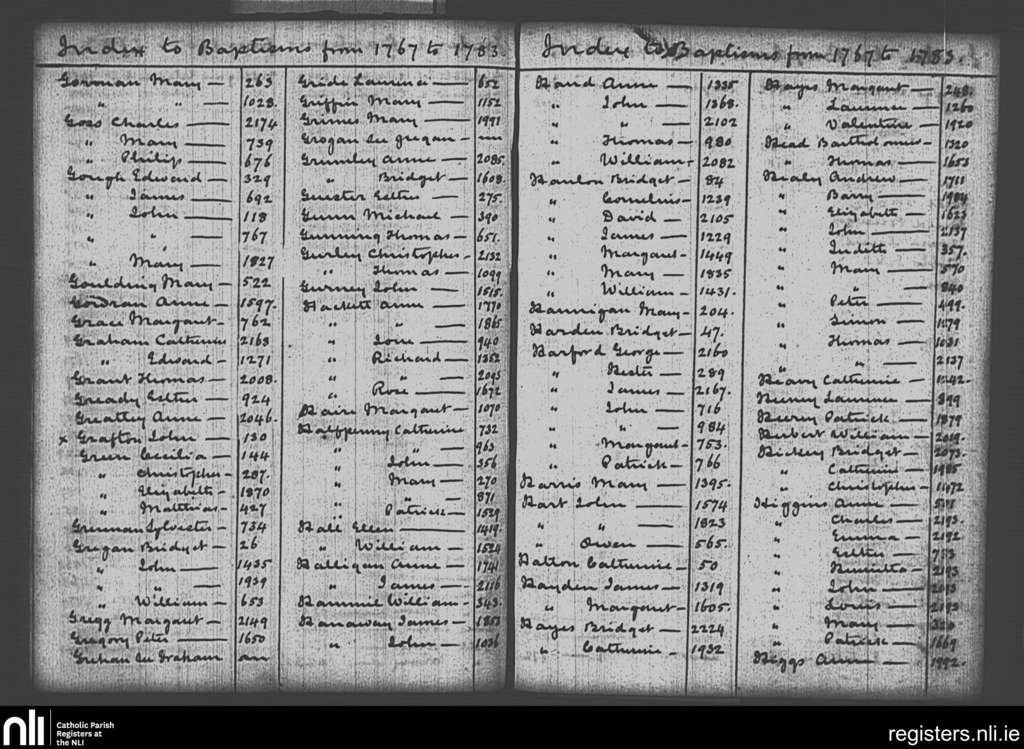 Index to Baptisms from 1767 to 1783
Gorman Mary — 263
" " — 1028
Goss Charles — 2174
" Mary — 739
" Philip — 676
Gough Edward — 329
" James — 692
" John — 118
" " — 767
" Mary — 1827
Goulding Mary — 522
Anne — 1597
Grace Margaret — 762
Graham Catherine 2163
" Edward — 1271
Grant Thomas — 2008
Gready Esther — 924
Greatley Anne — 2046
x Grafton John — 130
Green Cecilia — 144
" Christopher — 287
" Elizabeth — 1870
" Matthias — 427
Grennan Sylvester — 734
Gregan Bridget — 26
" John — 1435
" " — 1939
" William — 653
Gregg Margaret — 2149
Gregory Peter — 1650
Grehan See Graham
Gride Laurence — 652
Griffin Mary — 1152
Grimes Mary — 1991
Grogan See Gregan —
Grumley Anne — 2085
" Bridget — 1608
Guester Esther — 275
Gunn Michael — 390
Gunning Thomas — 651
Gurley Christopher — 2132
" Thomas — 1099
Gurney John — 1515
Hackett Anne — 1770
" " — 1865
" Jane — 940
" Richard — 1352
" " — 2093
" Rose — 1672
Haire Margaret — 1070
Halfpenny Catherine 732
" " — 963
" John — 356
" Mary — 270
" " — 871
" Patrick — 1529
Hall Ellen — 1419
" William — 1524
Halligan Anne — 1741
" James — 2116
Hammil William — 343
Hanaway James — 1853
" John — 1036
Index to Baptisms from 1767 to 1783.
Hand Anne — 1335
" John — 1368
" " — 2102
" Thomas — 980
" William — 2082
Hanlon Bridget — 84
" Cornelius — 1239
" David — 2105
" James — 1229
" Margaret — 1449
" Mary — 1835
" William — 1431
Hannigan Mary — 204
Harden Bridget — 47
Harford George — 2160
" Hester — 289
" James — 2167
" John — 716
" " — 984
" Margaret — 753
" Patrick — 766
Harris Mary — 1395
Hart John — 1574
" " — 1823
" Owen — 565
Hatton Catherine — 50
Hayden James — 1319
" Margaret — 1605
Hayes Bridget — 2224
" Catherine — 1932
Hayes Margaret — 248
" Laurence — 1260
" Valentine — 1920
Head Bartholomew — 1320
" Thomas — 1653
Healy Andrew — 1711
" Barry — 1984
" Elizabeth — 1623
" John — 2137
" Judith — 357
" Mary — 570
" " — 840
" Peter — 499
" Simon — 1179
" Thomas — 1031
" " — 2137
Heavy Catherine — 1242
Heeney Laurence — 899
Henry Patrick — 1879
Herbert William — 2019
Hickley Bridget — 2073
" Catherine — 1985
" Christopher —
Higgins Anne —
" Charles — 2193
" Emma — 2192
" Esther — 753
" Henrietta — 2193
" John — 2193
" Louis — 2193
" Mary — 320
" Patrick — 1669
Higgs Anne — 1992
nli
Catholic Parish
Registers at
the NLI
registers.nli.ie